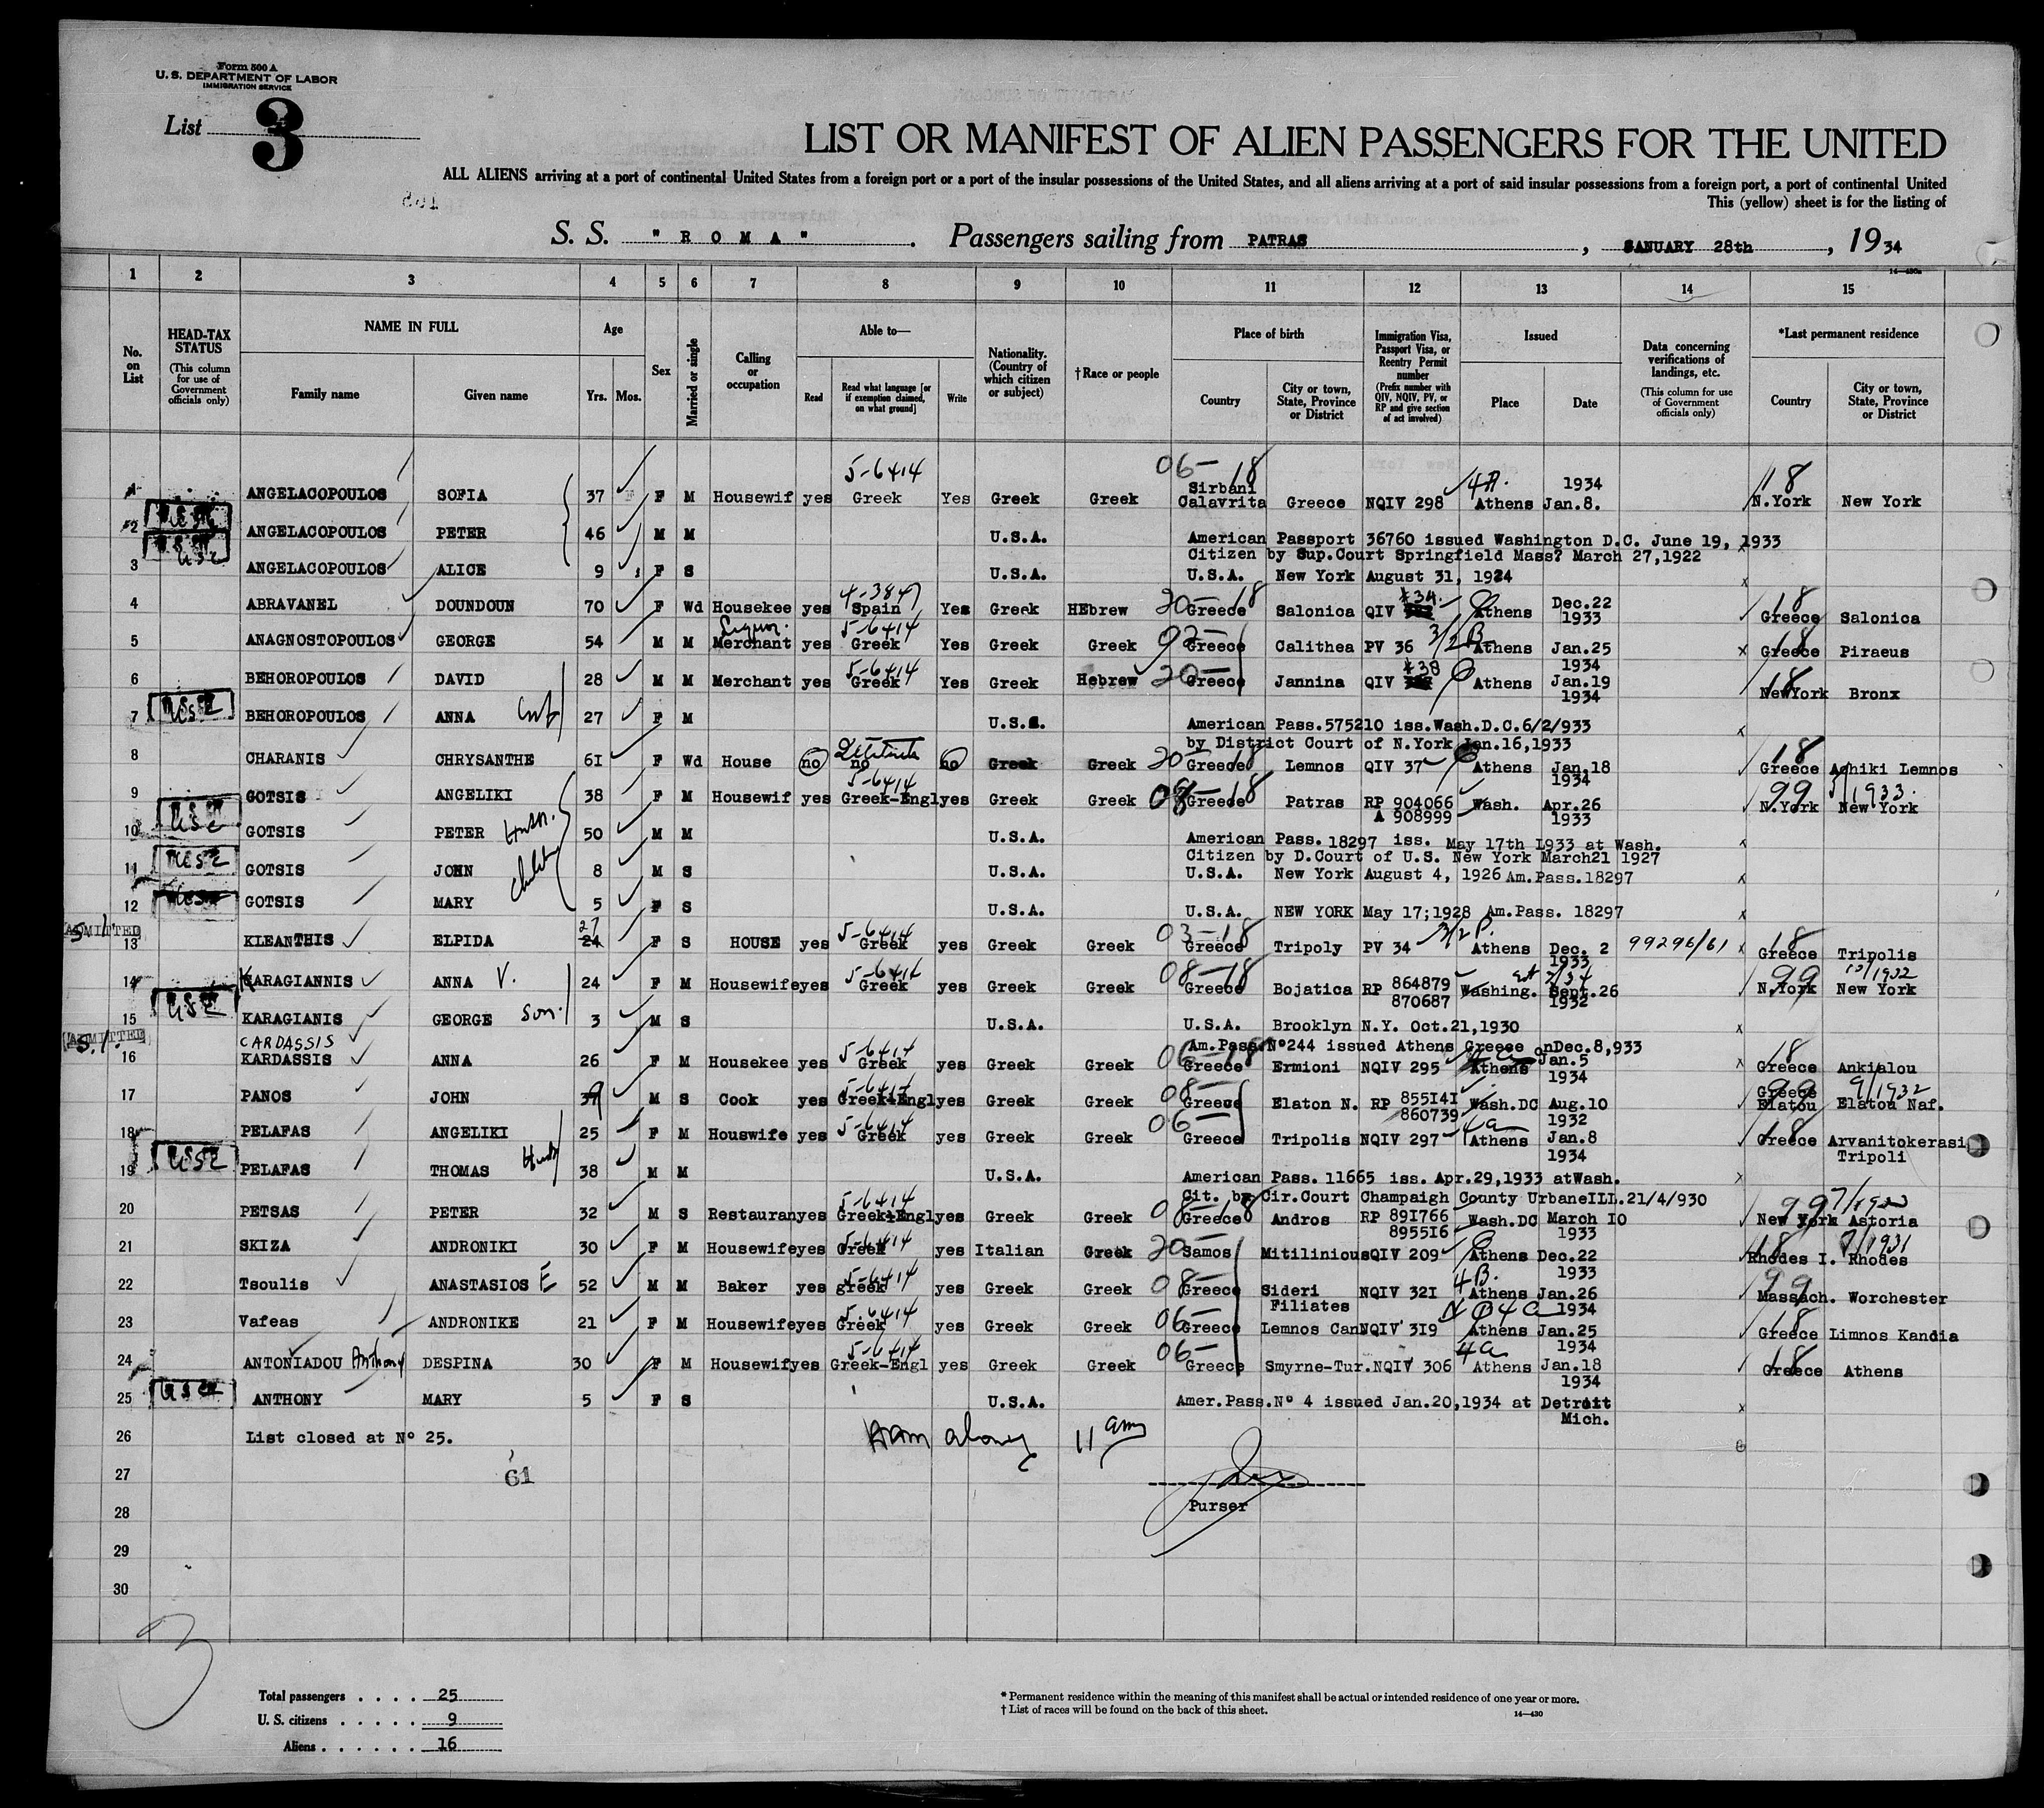 Form 500 A
U. S. DEPARTMENT OF LABOR
IMMIGRATION SERVICE
List 3
LIST OR MANIFEST OF ALIEN PASSENGERS FOR THE UNITED
ALL ALIENS arriving at a port of continental United States from a foreign port or a port of the insular possessions of the United States, and all aliens arriving at a port of said insular possessions from a foreign port, a port of continental United
This (yellow) sheet is for the listing of
S. S. "ROMA". Passengers sailing from PATRAS, SANUARY 28th, 1934
14-430a
1 2 3 4 5 6 7 8 9 10 11 12 13 14 15
No. on List
HEAD-TAX STATUS (This column for use of Government officials only)
NAME IN FULL
Family name Given name
Age
Yrs. Mos.
Sex
Married or single
Calling or occupation
Able to—
Read Read what language [or if exemption claimed, on what ground] Write
Nationality. (Country of which citizen or subject)
†Race or people
Place of birth
Country City or town, State, Province or District
Immigration Visa, Passport Visa, or Reentry Permit number (Prefix number with QIV, NQIV, PV, or RP and give section of act involved)
Issued
Place Date
Data concerning verifications of landings, etc. (This column for use of Government officials only)
*Last permanent residence
Country City or town, State, Province or District
5-6414 06-18 4A 1934 18
1 ANGELACOPOULOS SOFIA 37 F M Housewif yes Greek Yes Greek Greek Sirbani Calavrita Greece NQIV 298 Athens Jan.8. N.York New York
2 ANGELACOPOULOS PETER 46 M M U.S.A. American Passport 36760 issued Washington D.C. June 19, 1933
Citizen by Sup.Court Springfield Mass? March 27,1922
3 ANGELACOPOULOS ALICE 9 F S U.S.A. U.S.A. New York August 31, 1924
4-384 20-18 #34. 18
4 ABRAVANEL DOUNDOUN 70 F Wd Housekee yes Spain Yes Greek HEbrew Greece Salonica QIV Athens Dec.22 1933 Greece Salonica
Liquor. 5-6414 3/2 B 18
5 ANAGNOSTOPOULOS GEORGE 54 M M Merchant yes Greek Yes Greek Greek Greece Calithea PV 36 Athens Jan.25 1934 Greece Piraeus
5-6414 20- #38 18
6 BEHOROPOULOS DAVID 28 M M Merchant yes Greek Yes Greek Hebrew Greece Jannina QIV Athens Jan.19 1934 NewYork Bronx
7 BEHOROPOULOS ANNA 27 F M U.S.A. American Pass.575210 iss.Wash.D.C.6/2/933
by District Court of N.York Jan.16,1933
8 CHARANIS CHRYSANTHE 61 F Wd House no no no Greek Greek 20-18 Greece Lemnos QIV 37 Athens Jan.18 1934 18 Greece Aghiki Lemnos
5-6414 08-18 99 5/1933.
9 GOTSIS ANGELIKI 38 F M Housewif yes Greek-Engl yes Greek Greek Greece Patras RP 904066 A 908999 Wash. Apr.26 1933 N.York New York
10 GOTSIS PETER Husn. 50 M M U.S.A. American Pass.18297 iss. May 17th 1933 at Wash.
Citizen by D.Court of U.S. New York March21 1927
11 GOTSIS JOHN 8 M S U.S.A. U.S.A. New York August 4, 1926 Am.Pass.18297
12 GOTSIS MARY 5 F S U.S.A. U.S.A. NEW YORK May 17;1928 Am.Pass. 18297
ADMITTED S.I. 27 5-6414 03-18 3/2 B. 18
13 KLEANTHIS ELPIDA 24 F S HOUSE yes Greek yes Greek Greek Greece Tripoly PV 34 Athens Dec. 2 1933 99296/61 Greece Tripolis
5-6414 08-18 99 10/1932
14 KARAGIANNIS ANNA V. 24 F M Housewife yes Greek yes Greek Greek Greece Bojatica RP 864879 870687 Washing. Sept.26 1932 N.York New York
15 KARAGIANIS GEORGE son. 3 M S U.S.A. U.S.A. Brooklyn N.Y. Oct.21,1930
Am.Pass.Nº244 issued Athens Greece onDec.8,933
ADMITTED S.I. CARDASSIS 5-6414 06-18 18
16 KARDASSIS ANNA 26 F M Housekee yes Greek yes Greek Greek Greece Ermioni NQIV 295 Athens Jan.5 1934 Greece Ankialou
5-6414 08- 99 9/1932
17 PANOS JOHN M S Cook yes Greek+Engl yes Greek Greek Greece Elaton N. RP 855141 860739 Wash.DC Aug.10 1932 Greece Elatou Elatou Naf.
5-6414 06- 4a 18
18 PELAFAS ANGELIKI 25 F M Houswife yes Greek yes Greek Greek Greece Tripolis NQIV 297 Athens Jan.8 1934 Greece Arvanitokerasi Tripoli
19 PELAFAS THOMAS Husb 38 M M U.S.A. American Pass. 11665 iss. Apr.29,1933 atWash.
Cit. by Cir.Court Champaigh County UrbaneILL.21/4/930
5-6414 08-18 99
20 PETSAS PETER 32 M S Restauran yes Greek+Engl yes Greek Greek Greece Andros RP 891766 895516 Wash.DC March 10 1933 New York Astoria
5-6414 20- 18 7/1931
21 SKIZA ANDRONIKI 30 F M Housewife yes Greek yes Italian Greek Samos Mitilinious QIV 209 Athens Dec.22 1933 Rhodes I. Rhodes
5-6414 08- 4B. 99
22 Tsoulis ANASTASIOS E 52 M M Baker yes greek yes Greek Greek Greece Sideri Filiates NQIV 321 Athens Jan.26 1934 Massach. Worchester
5-6414 06- 18
23 Vafeas ANDRONIKE 21 F M Housewife yes Greek yes Greek Greek Greece Lemnos Can NQIV 319 Athens Jan.25 1934 Greece Limnos Kandia
5-6414 06- 4a 18
24 ANTONIADOU Anthony DESPINA 30 F M Housewif yes Greek-Engl yes Greek Greek Greece Smyrne-Tur. NQIV 306 Athens Jan.18 1934 Greece Athens
25 USC ANTHONY MARY 5 F S U.S.A. Amer.Pass.Nº 4 issued Jan.20,1934 at Detroit Mich.
26 List closed at Nº 25.
11 am
27 61
28 Purser
29
30
3
Total passengers . . . . 25
U. S. citizens . . . . . 9
Aliens . . . . . . 16
* Permanent residence within the meaning of this manifest shall be actual or intended residence of one year or more.
† List of races will be found on the back of this sheet.
14—430